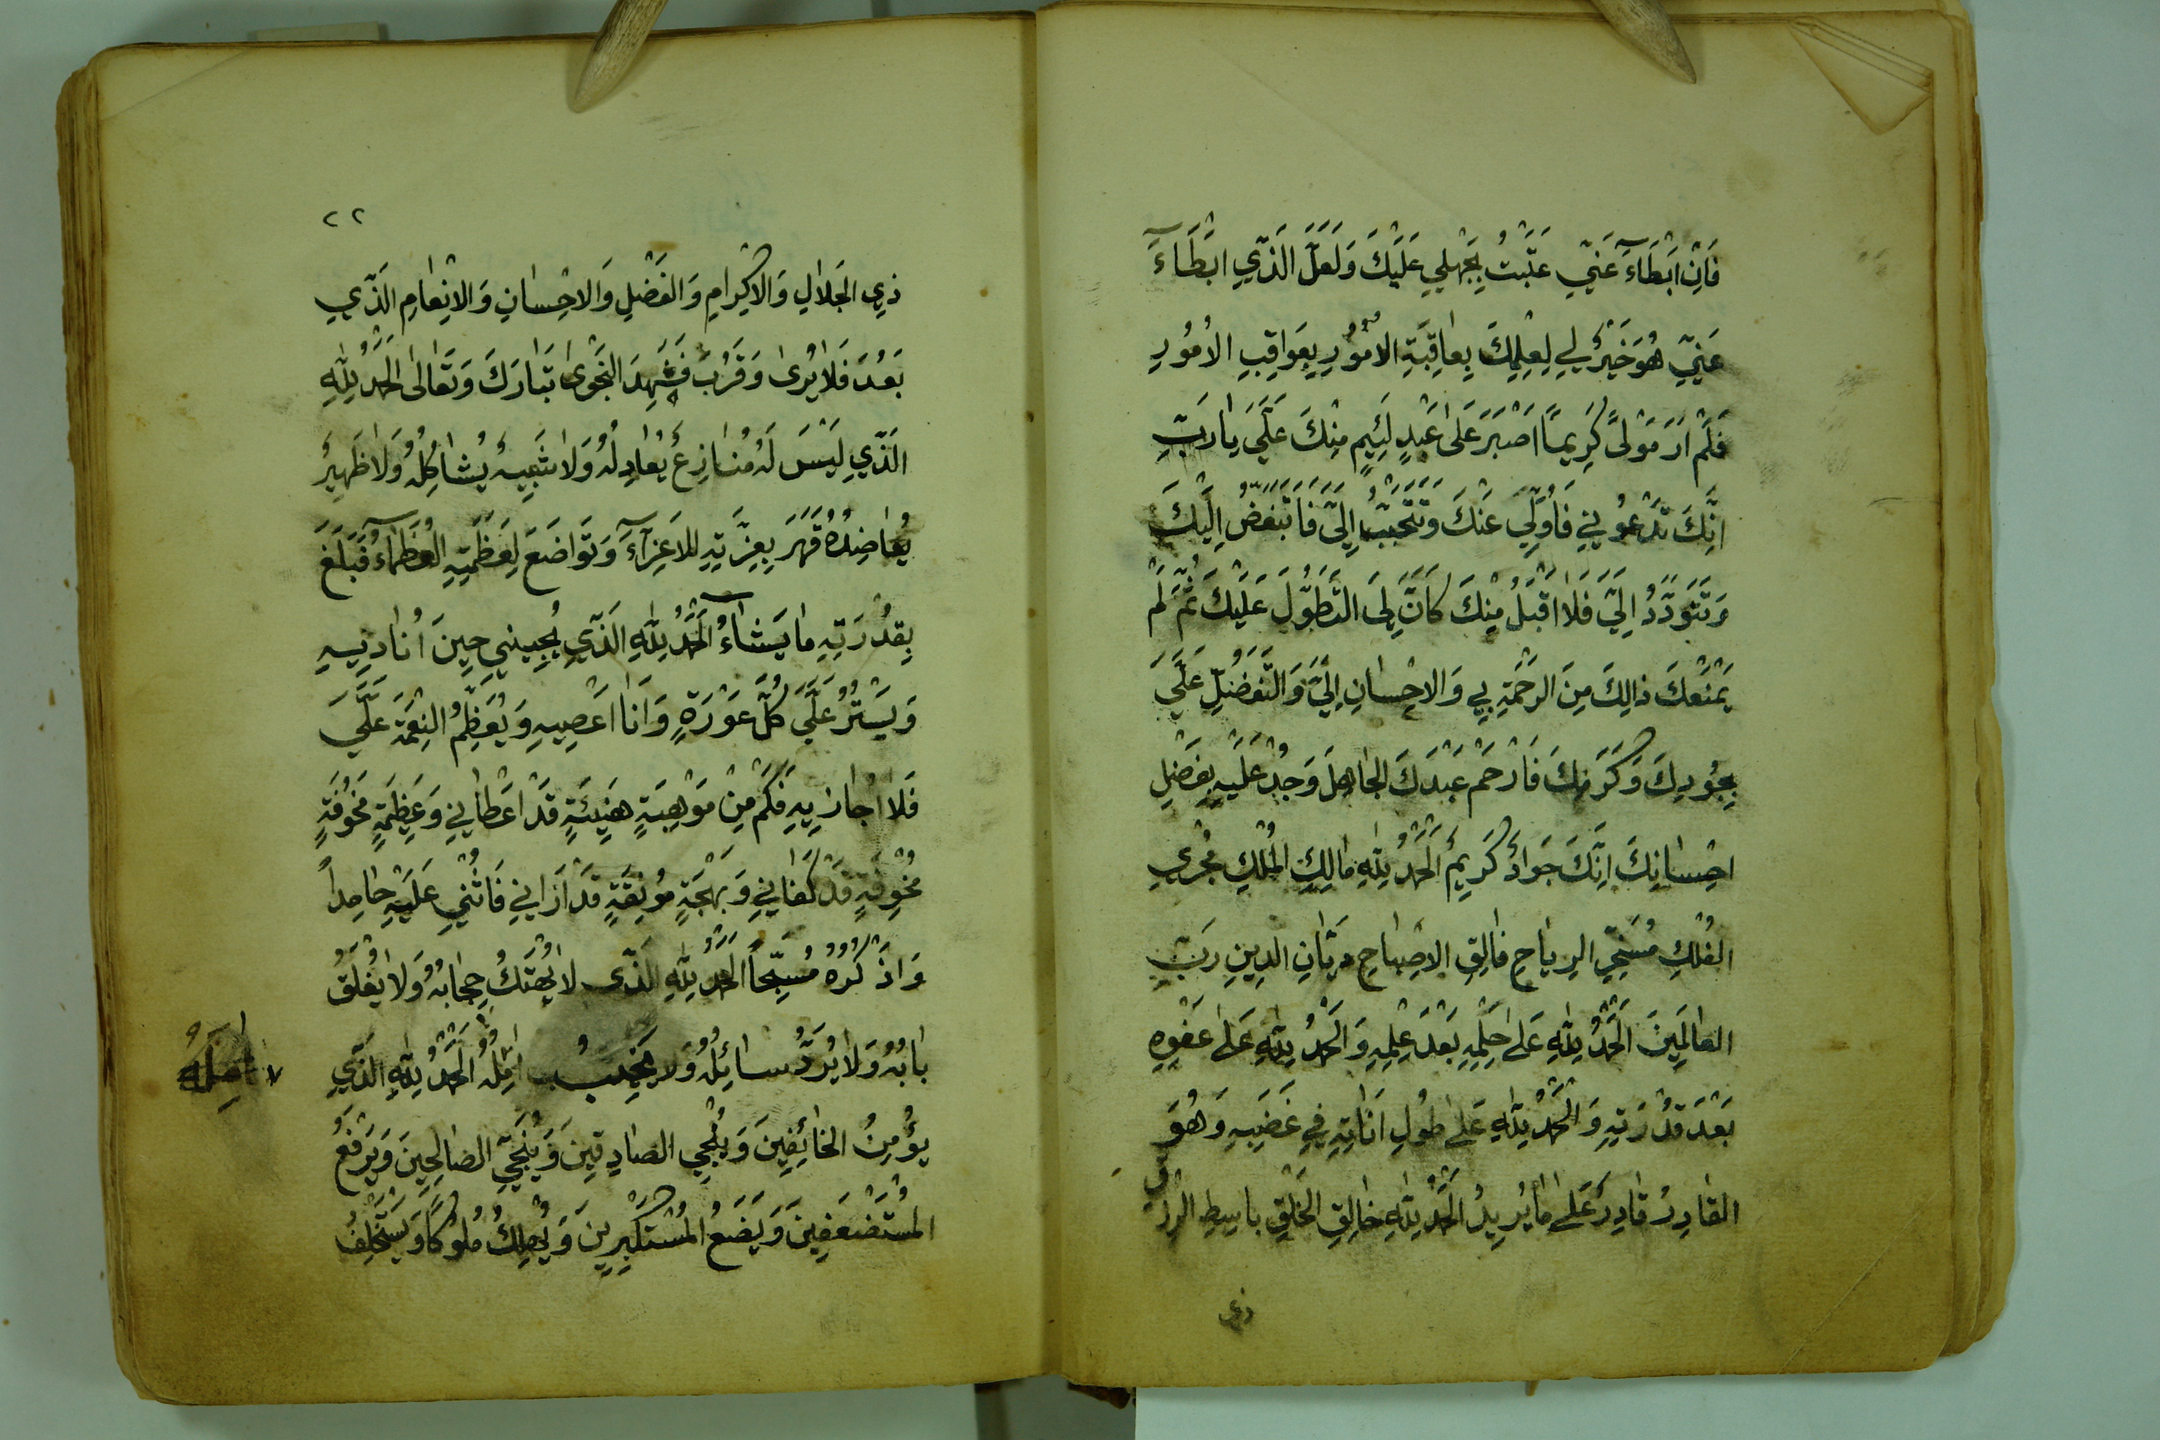 فَاِنْ اَبْطَاءَ عَنّي عَتَبْتُ بِجَهْلي عَلَيْكَ وَلَعَلَّ الَّذي ابْطَاءَ
عَنّي هُوَ خَيْرٌ لي لِعِلْمِكَ بِعاقِبَةِ الاُمُورِ بِعَواقِبِ الاُمُورِ
فَلَمْ اَرَ مَوْلىً كَريماً اَصْبَرَ عَلى عَبْدٍ لَئيمٍ مِنْكَ عَلَيَّ يارَبِّ
اِنَّكَ تَدْعُوني فَاُوَلّي عَنْكَ وَتَتَحَبَّبُ اِلَيَّ فَاَتَبَغَّضُ اِلَيْكَ
وَتَتَوَدَّدُ اِلَيَّ فَلا اَقْبَلُ مِنْكَ كَاَنَّ لِيَ التَّطَوُّلَ عَلَيْكَ ثُمَّ لَمْ
يَمْنَعْكَ ذالِكَ مِنَ الرَحْمَةِ بي وَالاِحْسانِ اِلَيَّ وَالتَّفَضُّلِ عَلَيَّ
بِجُودِكَ وَكَرَمِكَ فَارْحَمْ عَبْدَكَ الجاهِلَ وَجُدْ عَلَيْهِ بِفَضْلِ
اِحْسانِكَ اِنَّكَ جَوادٌ كَريمٌ اَلْحَمْدُ لِلّهِ مالِكِ المُلْكِ مُجْرِي
الفُلْكِ مُسَخِّرِ الرِياحِ فالِقِ الاِصْباحِ دَيّانِ الدِينِ رَبِّ
العالَمينَ اَلْحَمْدُ لِلّهِ عَلى حِلْمِهِ بَعْدَ عِلْمِهِ وَالْحَمْدُ لِلّهِ عَلى عَفْوِهِ
بَعْدَ قُدْرَتِهِ وَالْحَمْدُ لِلّهِ عَلى طُولِ اَناتِهِ في غَضَبِهِ وَهُوَ
القادِرُ قادِرٌ عَلى مايُريدُ اَلْحَمْدُ لِلّهِ خالِقِ الخَلْقِ باسِطِ الرِزْقِ
ذي
٢٢
ذِي الجَلالِ وَالاِكْرامِ وَالفَضْلِ وَالاِحْسانِ وَالاِنْعامِ الَّذي
بَعُدَ فَلا يُرى وَقَرُبَ فَشَهِدَ النَجْوى تَبارَكَ وَتَعالى اَلْحَمْدُ لِلّهِ
الَّذي لَيْسَ لَهُ مُنازِعٌ يُعادِلُهُ وَلا شَبيهٌ يُشاكِلُهُ وَلا ظَهيرٌ
يُعاضِدُهُ قَهَرَ بِعِزَّتِهِ للاَعِزّاءَ وَتَواضَعَ لِعَظَمَتِهِ العُظَماءُ فَبَلَغَ
بِقُدْرَتِهِ مايَشاءُ اَلْحَمْدُ لِلّهِ الَّذي يُجيبُني حينَ اُناديهِ
وَيَسْتُرُ عَلَيَّ كُلَّ عَوْرَةٍ وَاَنا اَعْصيهِ وَيُعَظِّمُ النِعْمَةَ عَلَيَّ
فَلا اُجازيهِ فَكَمْ مِنْ مَوْهِبَةٍ هَنيئَةٍ قَدْ اَعْطاني وَعَظيمَةٍ مَخُوفَةٍ
مُخْوِفَةٍ قَدْ كَفاني وَبَهْجَةٍ مُونِقَةٍ قَدْ اَراني فَاُثْني عَلَيْهِ حامِداً
وَاَذْكُرُهُ مُسَبِّحاً اَلْحَمْدُ لِلّهِ الَّذي لا يُهْتَكُ حِجابُهُ وَلا يُغْلَقُ
بابُهُ وَلا يُرَدُّ سائِلُهُ وَلا يُخَيَّبُ امِلُهُ اَلْحَمْدُ لِلّهِ الَّذي
يُؤْمِنُ الخائِفينَ وَيُنْجِي الصادِقينَ وَيُنَجِّي الصالِحينَ وَيَرْفَعُ
المُسْتَضْعَفينَ وَيَضَعُ المُسْتَكْبِرينَ وَيُهْلِكُ مُلُوكاً وَيَسْتَخْلِفُ